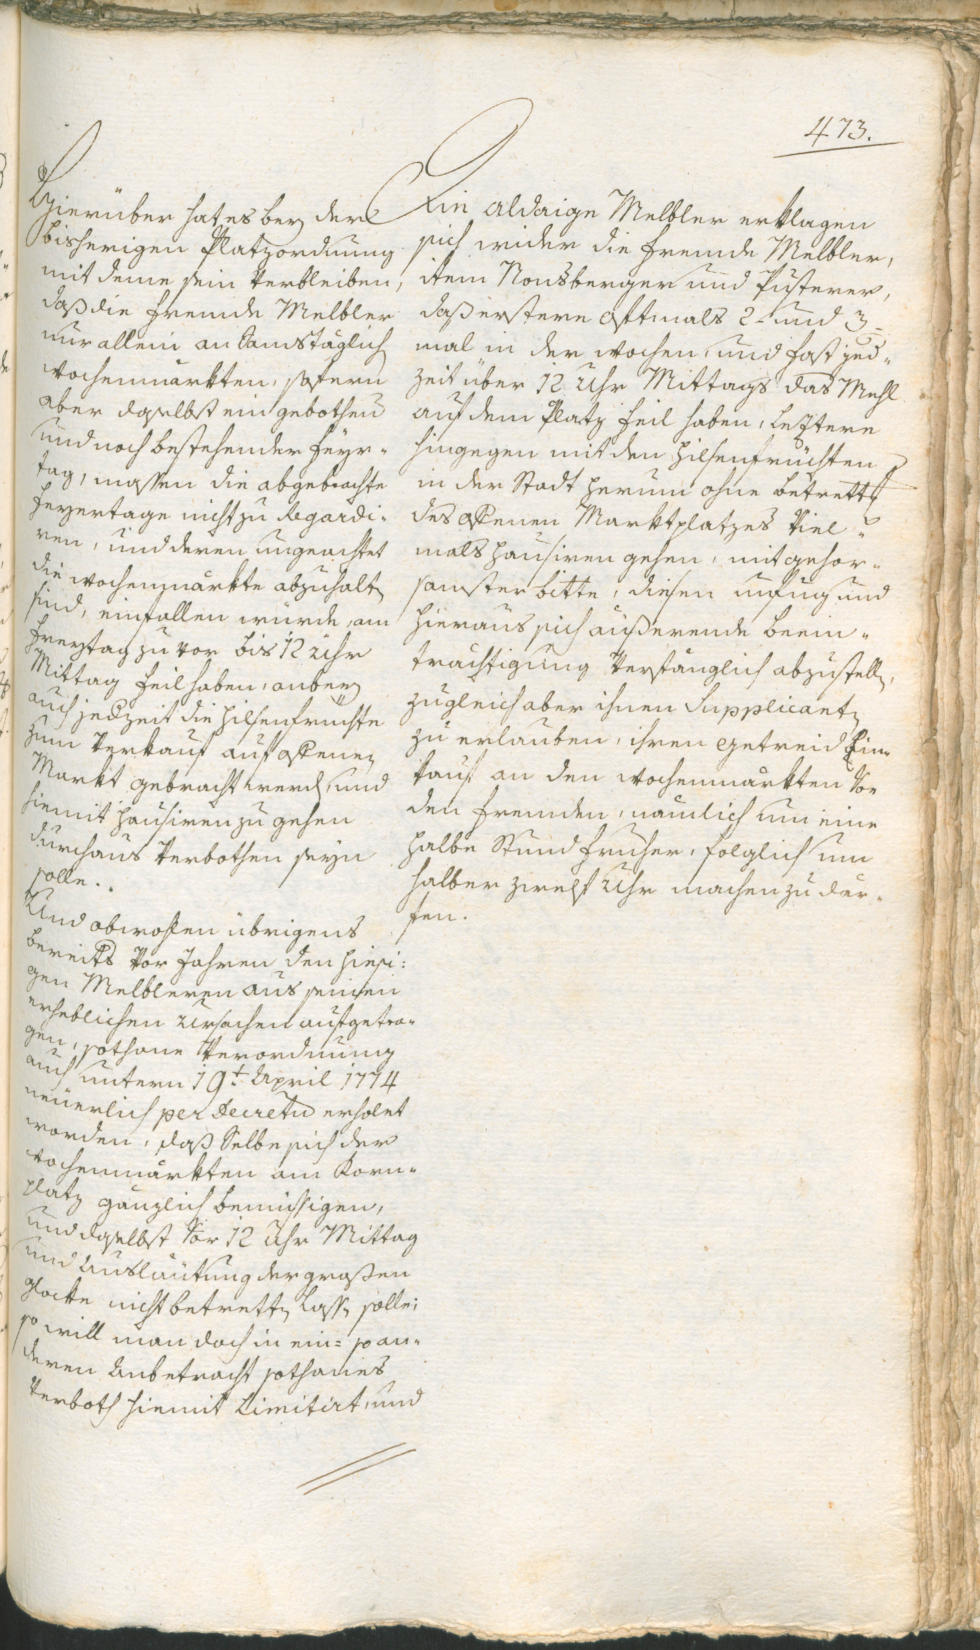 473.
Hierüber hat es bey der
bisherigen Platzordnung
mit deme sein Verbleiben,
daß die fremde Melbler
nur allein an Samstäglich
wochenmärkten, sofern
aber daselbst ein gebothen
und noch bestehender Feyr-
tag, massen die abgebrachte
Feyertage nicht zu regardi-
ren, und deren ungeachtet
die wochenmärkte abzuhalt
sind, einfallen wurde, am
Freytag zu vor bis 12 Uhr
Mittag feil haben, anbey
auch jedzeit die Hilsenfruchte
zum Verkauf auf offenen
Markt gebracht werd, und
hiemit hausiren zu gehen
durchaus verbothen seyn
solle.
Und obwohlen übrigens
bereits vor Jahren den hiesi-
gen Melbleren aus seinen
erheblichen Ursachen aufgetra-
gen, sothane Verordnung
auch untern 19t April 1774
neüerlich per Decretũ erholet
worden, daß selbe sich der
wochenmärkten am Korn-
platz gänzlich bemüssigen,
und daselbst vor 12 Uhr Mittag
und Ausläutung der großen
glocke nicht betretten lass solle;
so will man doch in ein- so an-
deren Anbetracht sothanes
Verboth hiemit Limitirt, und
Ein aldaige Melbler erklagen
sich wider die fremde Melbler,
item Nonsberger und Pusterer,
daß erstere oftmals 2- und 3-
mal in der wochen, und fast jed-
zeit über 12 Uhr Mittags das Mehl
auf dem Platz feil haben, Leztere
hingegen mit den Hilsenfrüchten
in der Stadt herum ohne betrettg
des offenen Marktplatzes viel-
mals hausiren gehen, mit gehor-
samster bitte, diesen unfug und
hieraus sich äußerende beein-
trächtigung verfänglich abzustelln,
zugleich aber ihnen Supplicantn
zu erlauben, ihren getreid Ein-
kauf an den wochenmärkten vor
den fremden, nämlich um eine
halbe Stund früher, folglich um
halber zwelf Uhr machen zu dür-
fen.